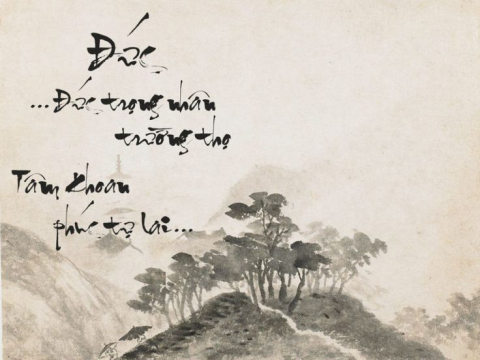 Đức
...Đức trọng nhân
trường thọ
Tâm khoan
phúc tự lai...